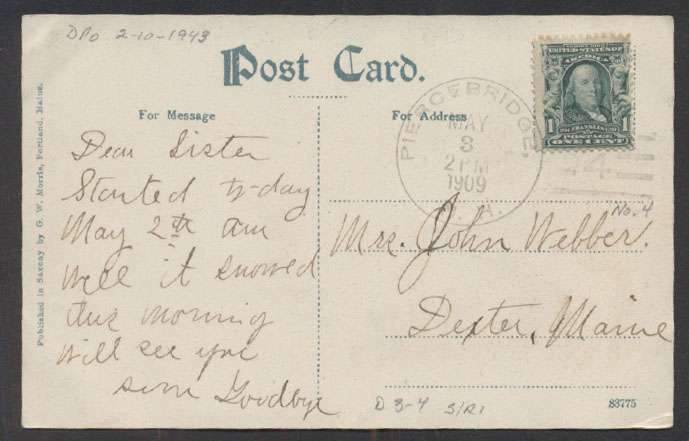 DPO 2-10-1943
Post Card.
For Message
For Address
UNITED STATES OF
AMERICA
1 FRANKLIN 1
POSTAGE
ONE CENT
PIERCE BRIDGE,
MAY
3
2 PM
1909
4
Published in Saxony by G. W. Morris, Portland, Maine.
Dear Sister
Started to-day
May 2th am
well it snowed
this morning
will see you
soon Goodbye
No. 4
Mrs. John Webber.
Dexter, Maine
D 3-4 S/R1
83775